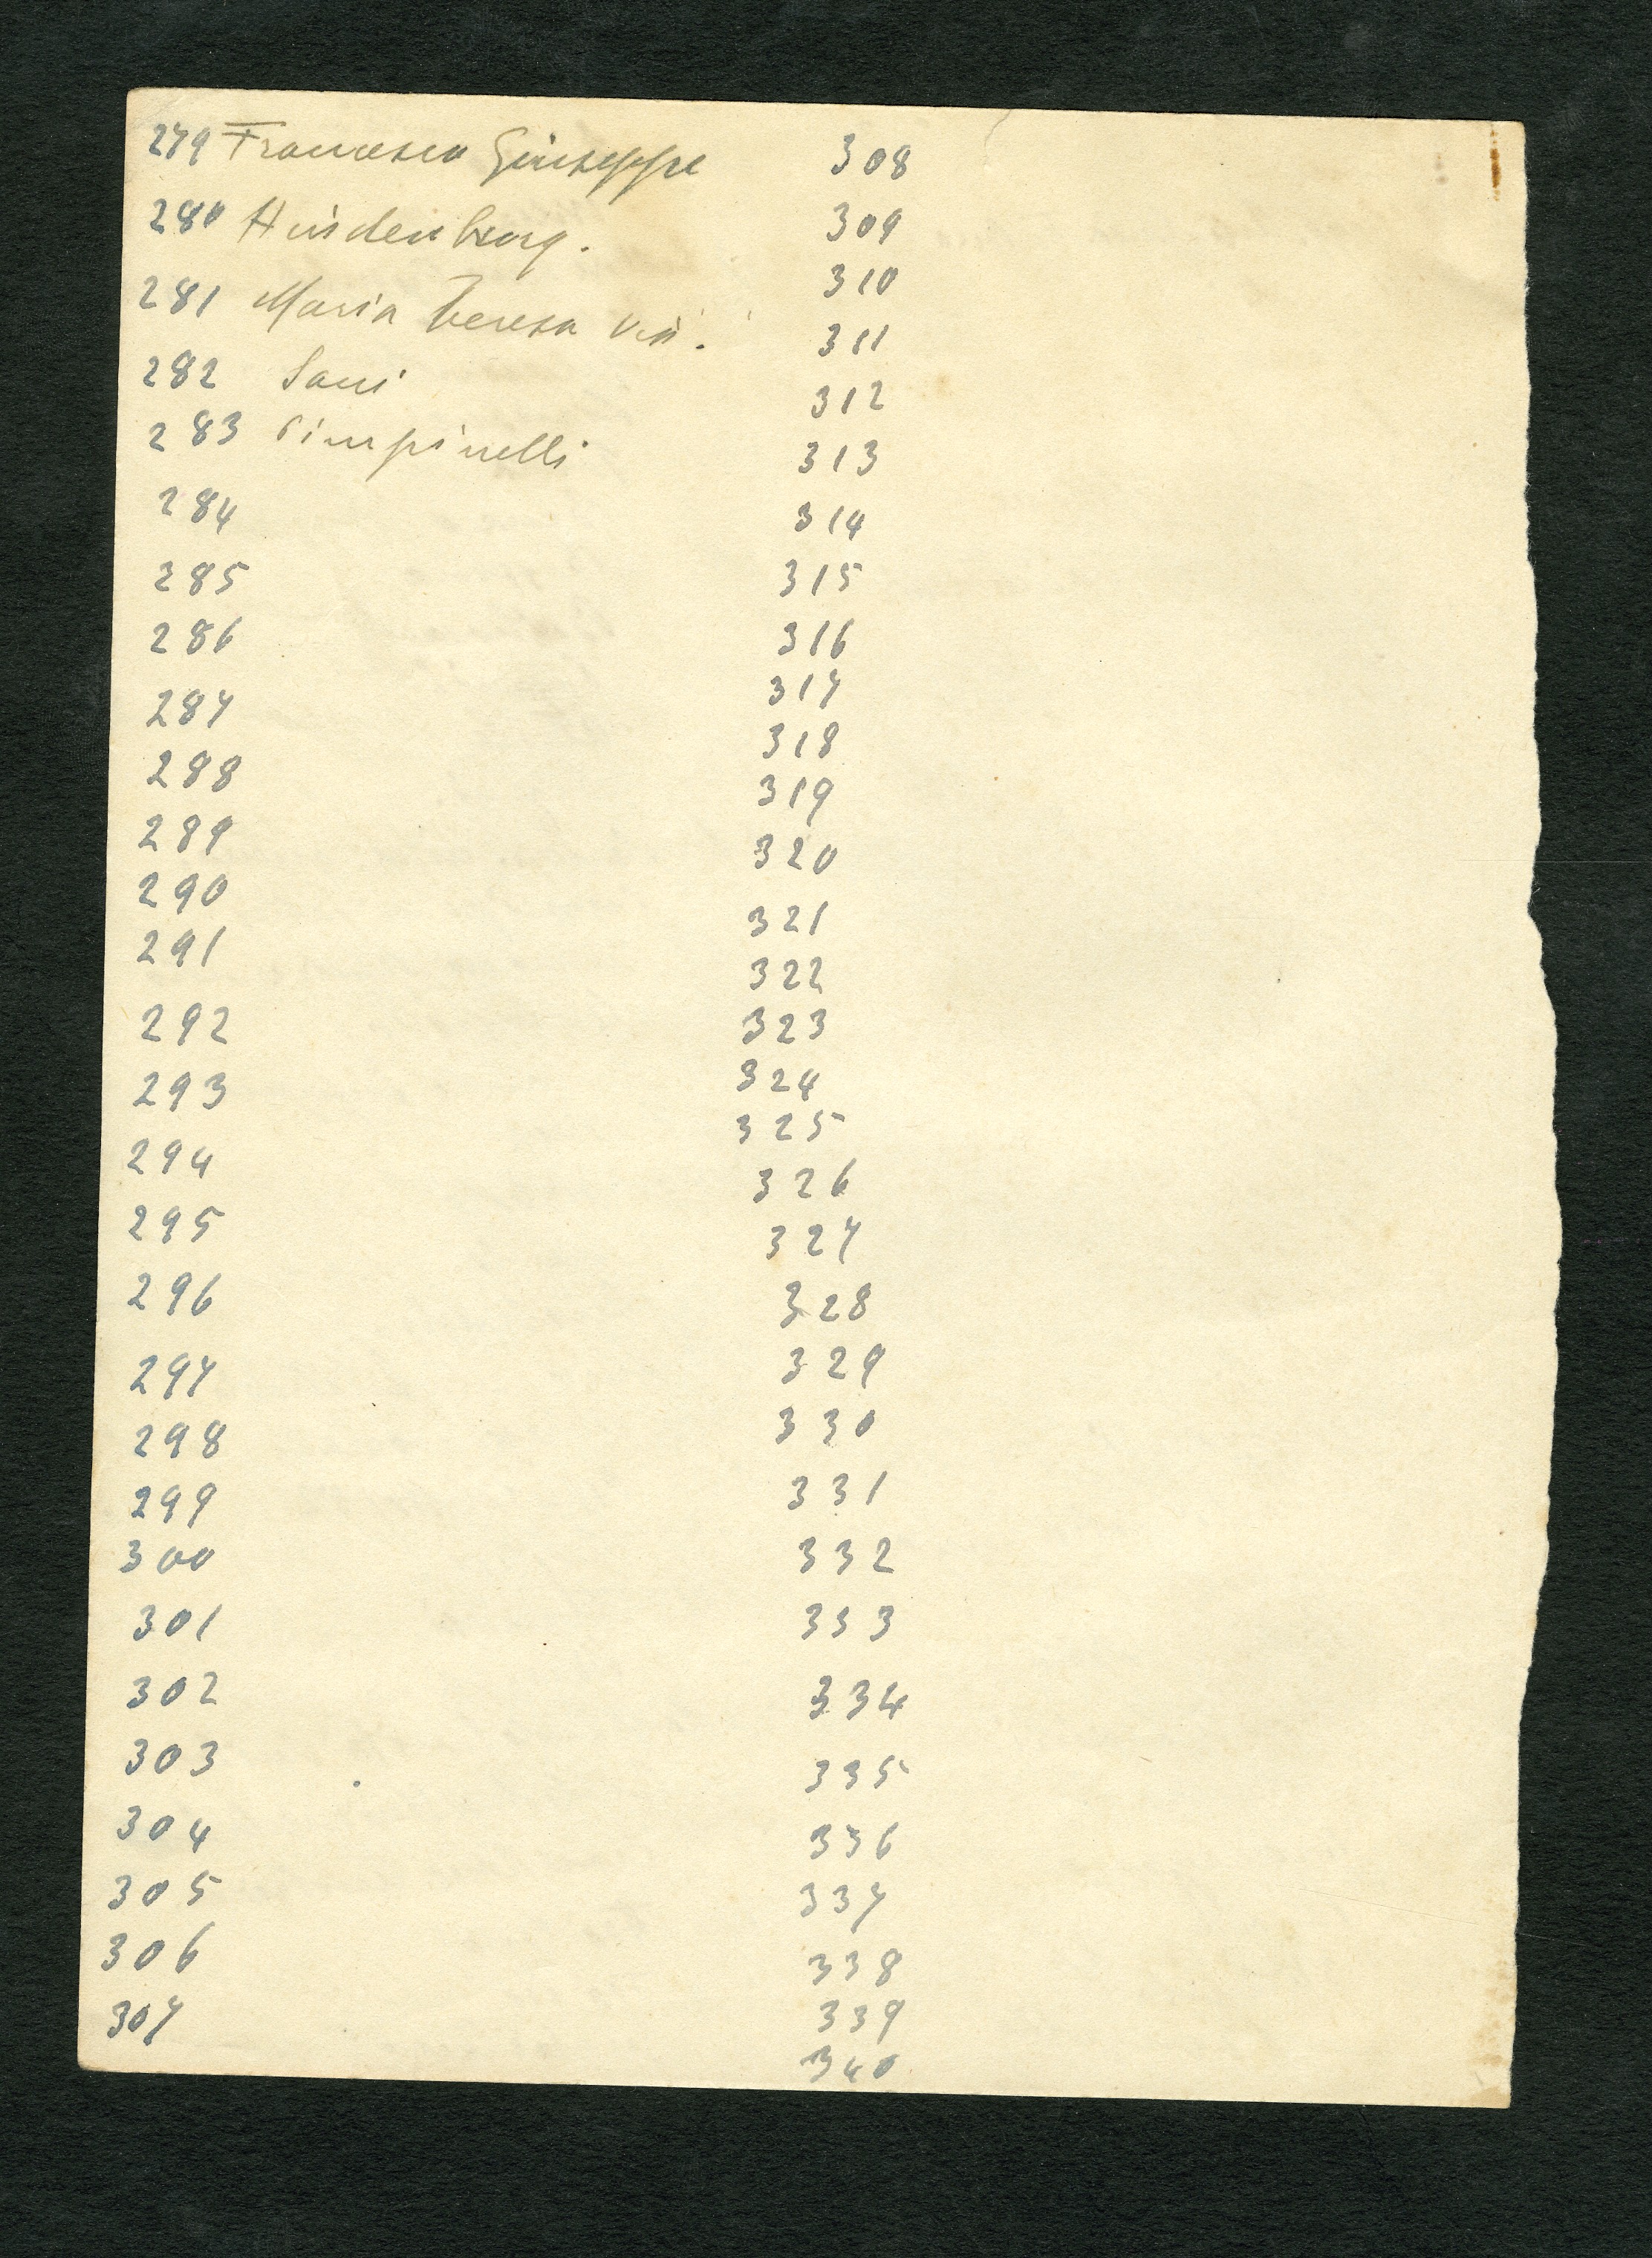 279 Francesco Giuseppe
280 Hindenburg.
281
Maria Teresa
282
283 Pimpinelli
284
285
286
287
288
289
290
291
292
293
294
295
296
297
298
299
300
301
302
303
304
305
306
307
308
309
310
311
312
313
314
315
316
317
318
319
320
321
322
323
324
325
326
327
328
329
330
331
332
333
334
335
336
337
338
339
340